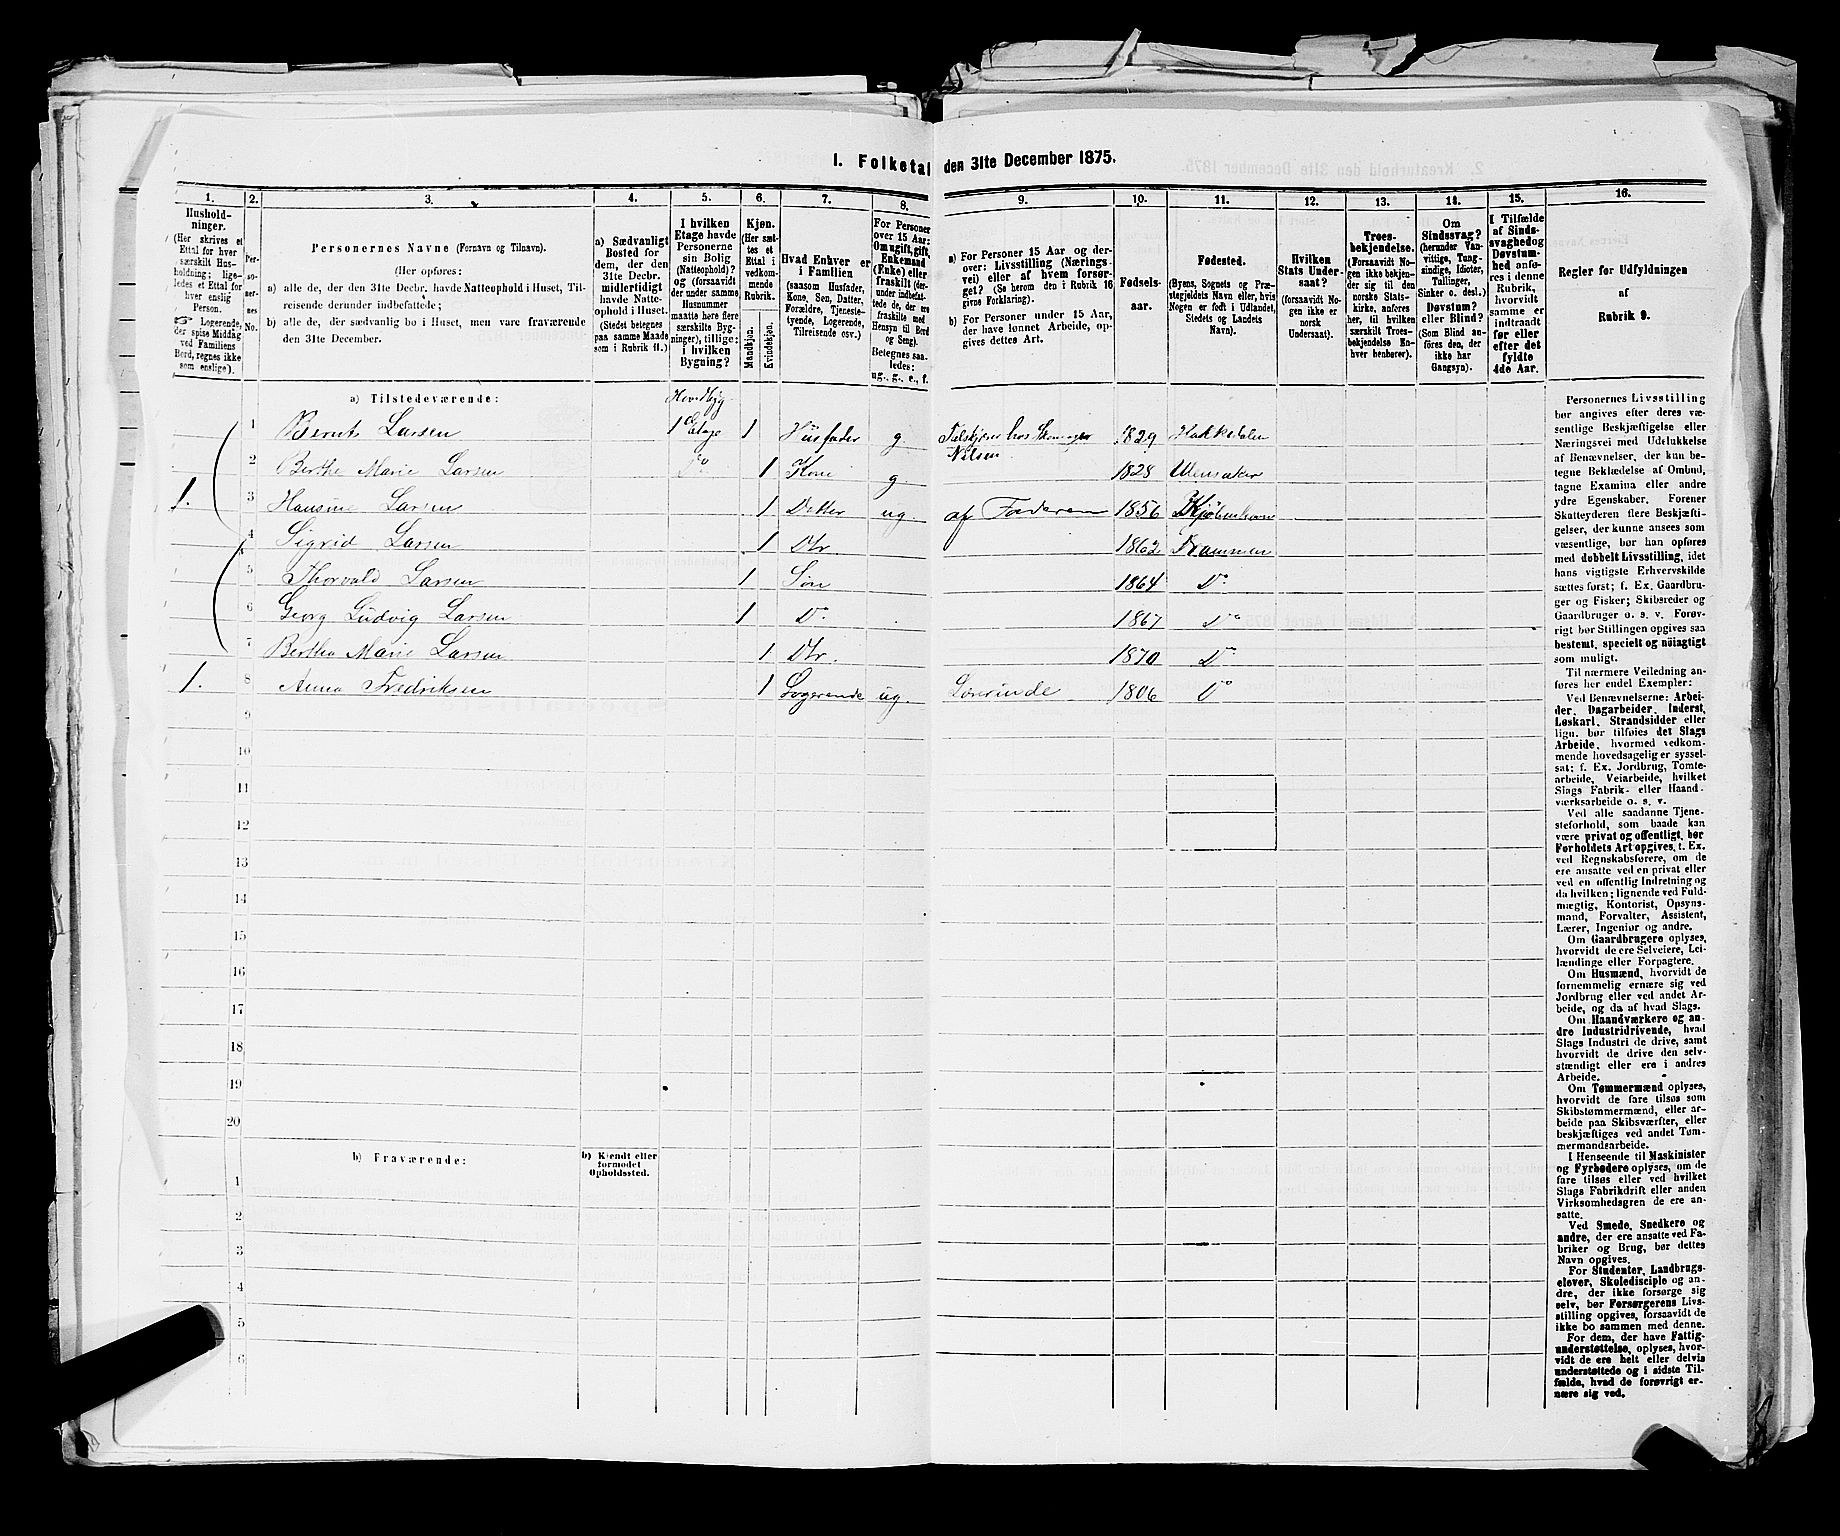 I. Folketal den 31te December 1875.
1. 2. 3. 4. 5. 6. 7. 8. 9. 10. 11. 12. 13. 14. 15. 16.
Hushold-
ninger.
(Her skrives et
Ettal for hver
særskilt Hus-
holdning; lige-
ledes et Ettal for
hver enslig
Person.
☞ Logerende,
der spise Middag
ved Familiens
Bord, regnes ikke
som enslige).
Per-
so-
ner-
nes
No.
Personernes Navne (Fornavn og Tilnavn).
(Her opføres:
a) alle de, der den 31te Decbr. havde Natteophold i Huset, Til-
reisende derunder indbefattede;
b) alle de, der sædvanlig bo i Huset, men vare fraværende
den 31te December.
a) Sædvanligt
Bosted for
dem, der den
31te Decbr.
midlertidigt
havde Natte-
ophold i Huset.
(Stedet betegnes
paa samme Maade
som i Rubrik 11.)
I hvilken
Etage havde
Personerne
sin Bolig
(Natteophold)?
og (forsaavidt
der under samme
Husnummer
maatte høre flere
særskilte Byg-
ninger), tillige:
i hvilken
Bygning?
Kjøn.
(Her sæt-
tes et
Ettal i
vedkom-
mende
Rubrik.
Mandkjøn.
Kvindekjøn.
Hvad Enhver er
i Familien
(saasom Husfader,
Kone, Søn, Datter,
Forældre, Tjeneste-
tyende, Logerende,
Tilreisende osv.)
For Personer
over 15 Aar:
Om ugift, gift,
Enkemand
(Enke) eller
fraskilt (der-
under indbefat-
tede de, der ere
fraskilte med
Hensyn til Bord
og Seng).
Betegnes saa-
ledes:
ug., g., e., f.
a) For Personer 15 Aar og der-
over: Livsstilling (Nærings-
vei) eller af hvem forsør-
get? (Se herom den i Rubrik 16
givne Forklaring).
b) For Personer under 15 Aar,
der have lønnet Arbeide, op-
gives dettes Art.
Fødsels-
aar.
Fødested.
(Byens, Sognets og Præ-
stegjeldets Navn eller, hvis
Nogen er født i Udlandet,
Stedets og Landets
Navn).
Hvilken
Stats Under-
saat?
(forsaavidt No-
gen ikke er
norsk
Undersaat).
Troes-
bekjendelse.
(Forsaavidt No-
gen ikke bekjen-
der sig til den
norske Stats-
kirke, anføres
her, til hvilken
særskilt Troes-
bekjendelse En-
hver henhører).
Om
Sindssvag?
(herunder Van-
vittige, Tung-
sindige, Idioter,
Tullinger,
Sinker o. desl.)
Døvstum?
eller Blind?
(Som Blind an-
føres den, der
ikke har
Gangsyn).
I Tilfælde
af Sinds-
svaghed og
Døvstum-
hed anfø-
res i denne
Rubrik,
hvorvidt
samme er
indtraadt
før eller
efter det
fyldte
4de Aar.
Regler for Udfyldningen
af
Rubrik 9.
a) Tilstedeværende:
Hovedbyg
1 Bernt Larsen 1 Etage 1 Husfader g. hos Skomager 1829 Hakkedalen
Nilsen
2 Berthe Marie Larsen Do 1 Kone g. 1828 Ullensaker
1. 3 Hansine Larsen 1 Datter ug. af Faderen 1856 Kjøbenhavn
4 Sigrid Larsen 1 Dtr 1862 Drammen
5 Thorvald Larsen 1 Søn 1864 Do
6 Georg Ludvig Larsen 1 Do. 1867 Do
7 Bertha Marie Larsen 1 Dtr. 1870 Do
1. 8 Anna Fredriksen 1 Logerende ug. 1806 Do
9
10
11
12
13
14
15
16
17
18
19
20
b) Fraværende:
b) Kjendt eller
formodet
Opholdssted.
1
2
3
4
5
6
Personernes Livsstilling
bør angives efter deres væ-
sentlige Beskjæftigelse eller
Næringsvei med Udelukkelse
af Benævnelser, der kun be-
tegne Beklædelse af Ombud,
tagne Examina eller andre
ydre Egenskaber. Forener
Skatteyderen flere Beskjæfti-
gelser, der kunne ansees som
væsentlige, bør han opføres
med dobbelt Livsstilling, idet
hans vigtigste Erhvervskilde
sættes først; f. Ex. Gaardbru-
ger og Fisker; Skibsreder og
Gaardbruger o. s. v. Forøv-
rigt bør Stillingen opgives saa
bestemt, specielt og nøiagtigt
som muligt.
Til nærmere Veiledning an-
føres her endel Exempler:
Ved Benævnelserne: Arbei-
der, Dagarbeider, Inderst,
Løskarl, Strandsidder eller
lign. bør tilføies det Slags
Arbeide, hvormed vedkom-
mende hovedsagelig er syssel-
sat; f. Ex. Jordbrug, Tomte-
arbeide, Veiarbeide, hvilket
Slags Fabrik- eller Haand-
værksarbeide o. s. v.
Ved alle saadanne Tjene-
steforhold, som baade kan
være privat og offentligt, bør
Forholdets Art opgives, f. Ex.
ved Regnskabsførere, om de
ere ansatte ved en privat eller
ved en offentlig Indretning og
da hvilken; lignende ved Fuld-
mægtig, Kontorist, Opsyns-
mand, Forvalter, Assistent,
Lærer, Ingeniør og andre.
Om Gaardbrugere oplyses,
hvorvidt de ere Selveiere, Lei-
lændinge eller Forpagtere.
Om Husmænd, hvorvidt de
fornemmelig ernære sig ved
Jordbrug eller ved andet Ar-
beide, og da af hvad Slags.
Om Haandværkere og an-
dre Industridrivende, hvad
Slags Industri de drive, samt
hvorvidt de drive den selv-
stændigt eller ere i andres
Arbeide.
Om Tømmermænd oplyses,
hvorvidt de fare tilsøs som
Skibstømmermænd, eller ar-
beide paa Skibsværfter, eller
beskjæftiges ved andet Tøm-
mermandsarbeide.
I Henseende til Maskinister
og Fyrbødere oplyses, om de
fare tilsøs eller ved hvilket
Slags Fabrikdrift eller anden
Virksomhedsgren de ere an-
satte.
Ved Smede, Snedkere og
andre, der ere ansatte ved Fa-
briker og Brug, bør dettes
Navn opgives.
For Studenter, Landbrugs-
elever, Skoledisciple og an-
dre, der ikke forsørge sig
selv, bør Forsørgerens Livs-
stilling opgives, forsaavidt de
ikke bo sammen med denne.
For dem, der have Fattig-
understøttelse, oplyses, hvor-
vidt de ere helt eller delvis
understøttede og i sidste Til-
fælde, hvad de forøvrigt er-
nære sig ved.